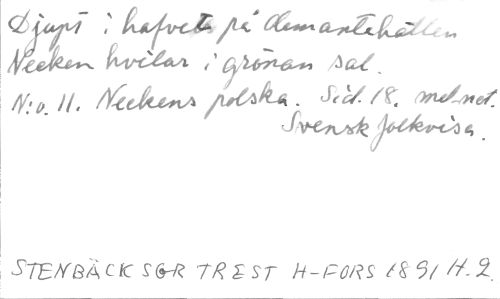 Djupt i hafvet på demantehällen
Necken hvilar i grönan sal.
N:o. 11. Neckens polska. Sid. 18. mel. not.
Svensk folkvisa.
STENBÄCK SGR TREST H-FORS 1891 H. 2.